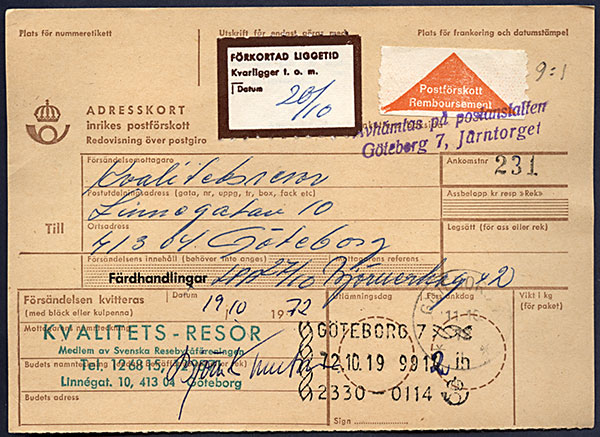 Plats för nummeretikett
Utskrift får endast göras med
Plats för frankering och datumstämpel
FÖRKORTAD LIGGETID
Kvarligger t. o. m.
Datum
20/10
Postförskott
Remboursement
9:1
ADRESSKORT
inrikes postförskott
Redovisning över postgiro
Avhämtas på postanstalten
Göteborg 7, Järntorget
Försändelsemottagare
Kvalitetsresor
Ankomstnr
231
Postutdelningsadress (gata, nr, uppg, tr, box, fack etc)
Assbelopp kr resp »Rek»
Till
Linnégatan 10
Ortsadress
Legsätt (för ass eller rek)
413 04 Göteborg
Försändelsens innehåll (behöver inte anges)
referens
Färdhandlingar
27/10
Försändelsen kvitteras
(med bläck eller kulpenna)
Datum
19/10 1972
Avlämningsdag
Vikt i kg
(för paket)
Mottagarens namnteckning
KVALITETS-RESOR
GÖTEBORG 7
Medlem av Svenska Resebyråföreningen
Tel. 12 68 15,
72.10.19
Linnégat. 10, 413 04 Göteborg
2330-0114
Budets adress
Sign